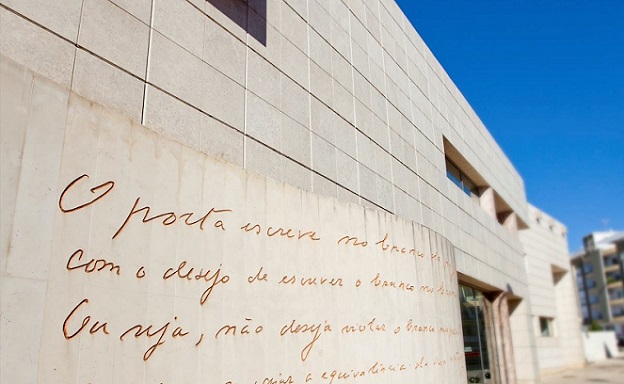 O poeta escreve no branco
com o desejo de escrever o branco no
Ou seja, não deseja violar o branco
criar a equivalência